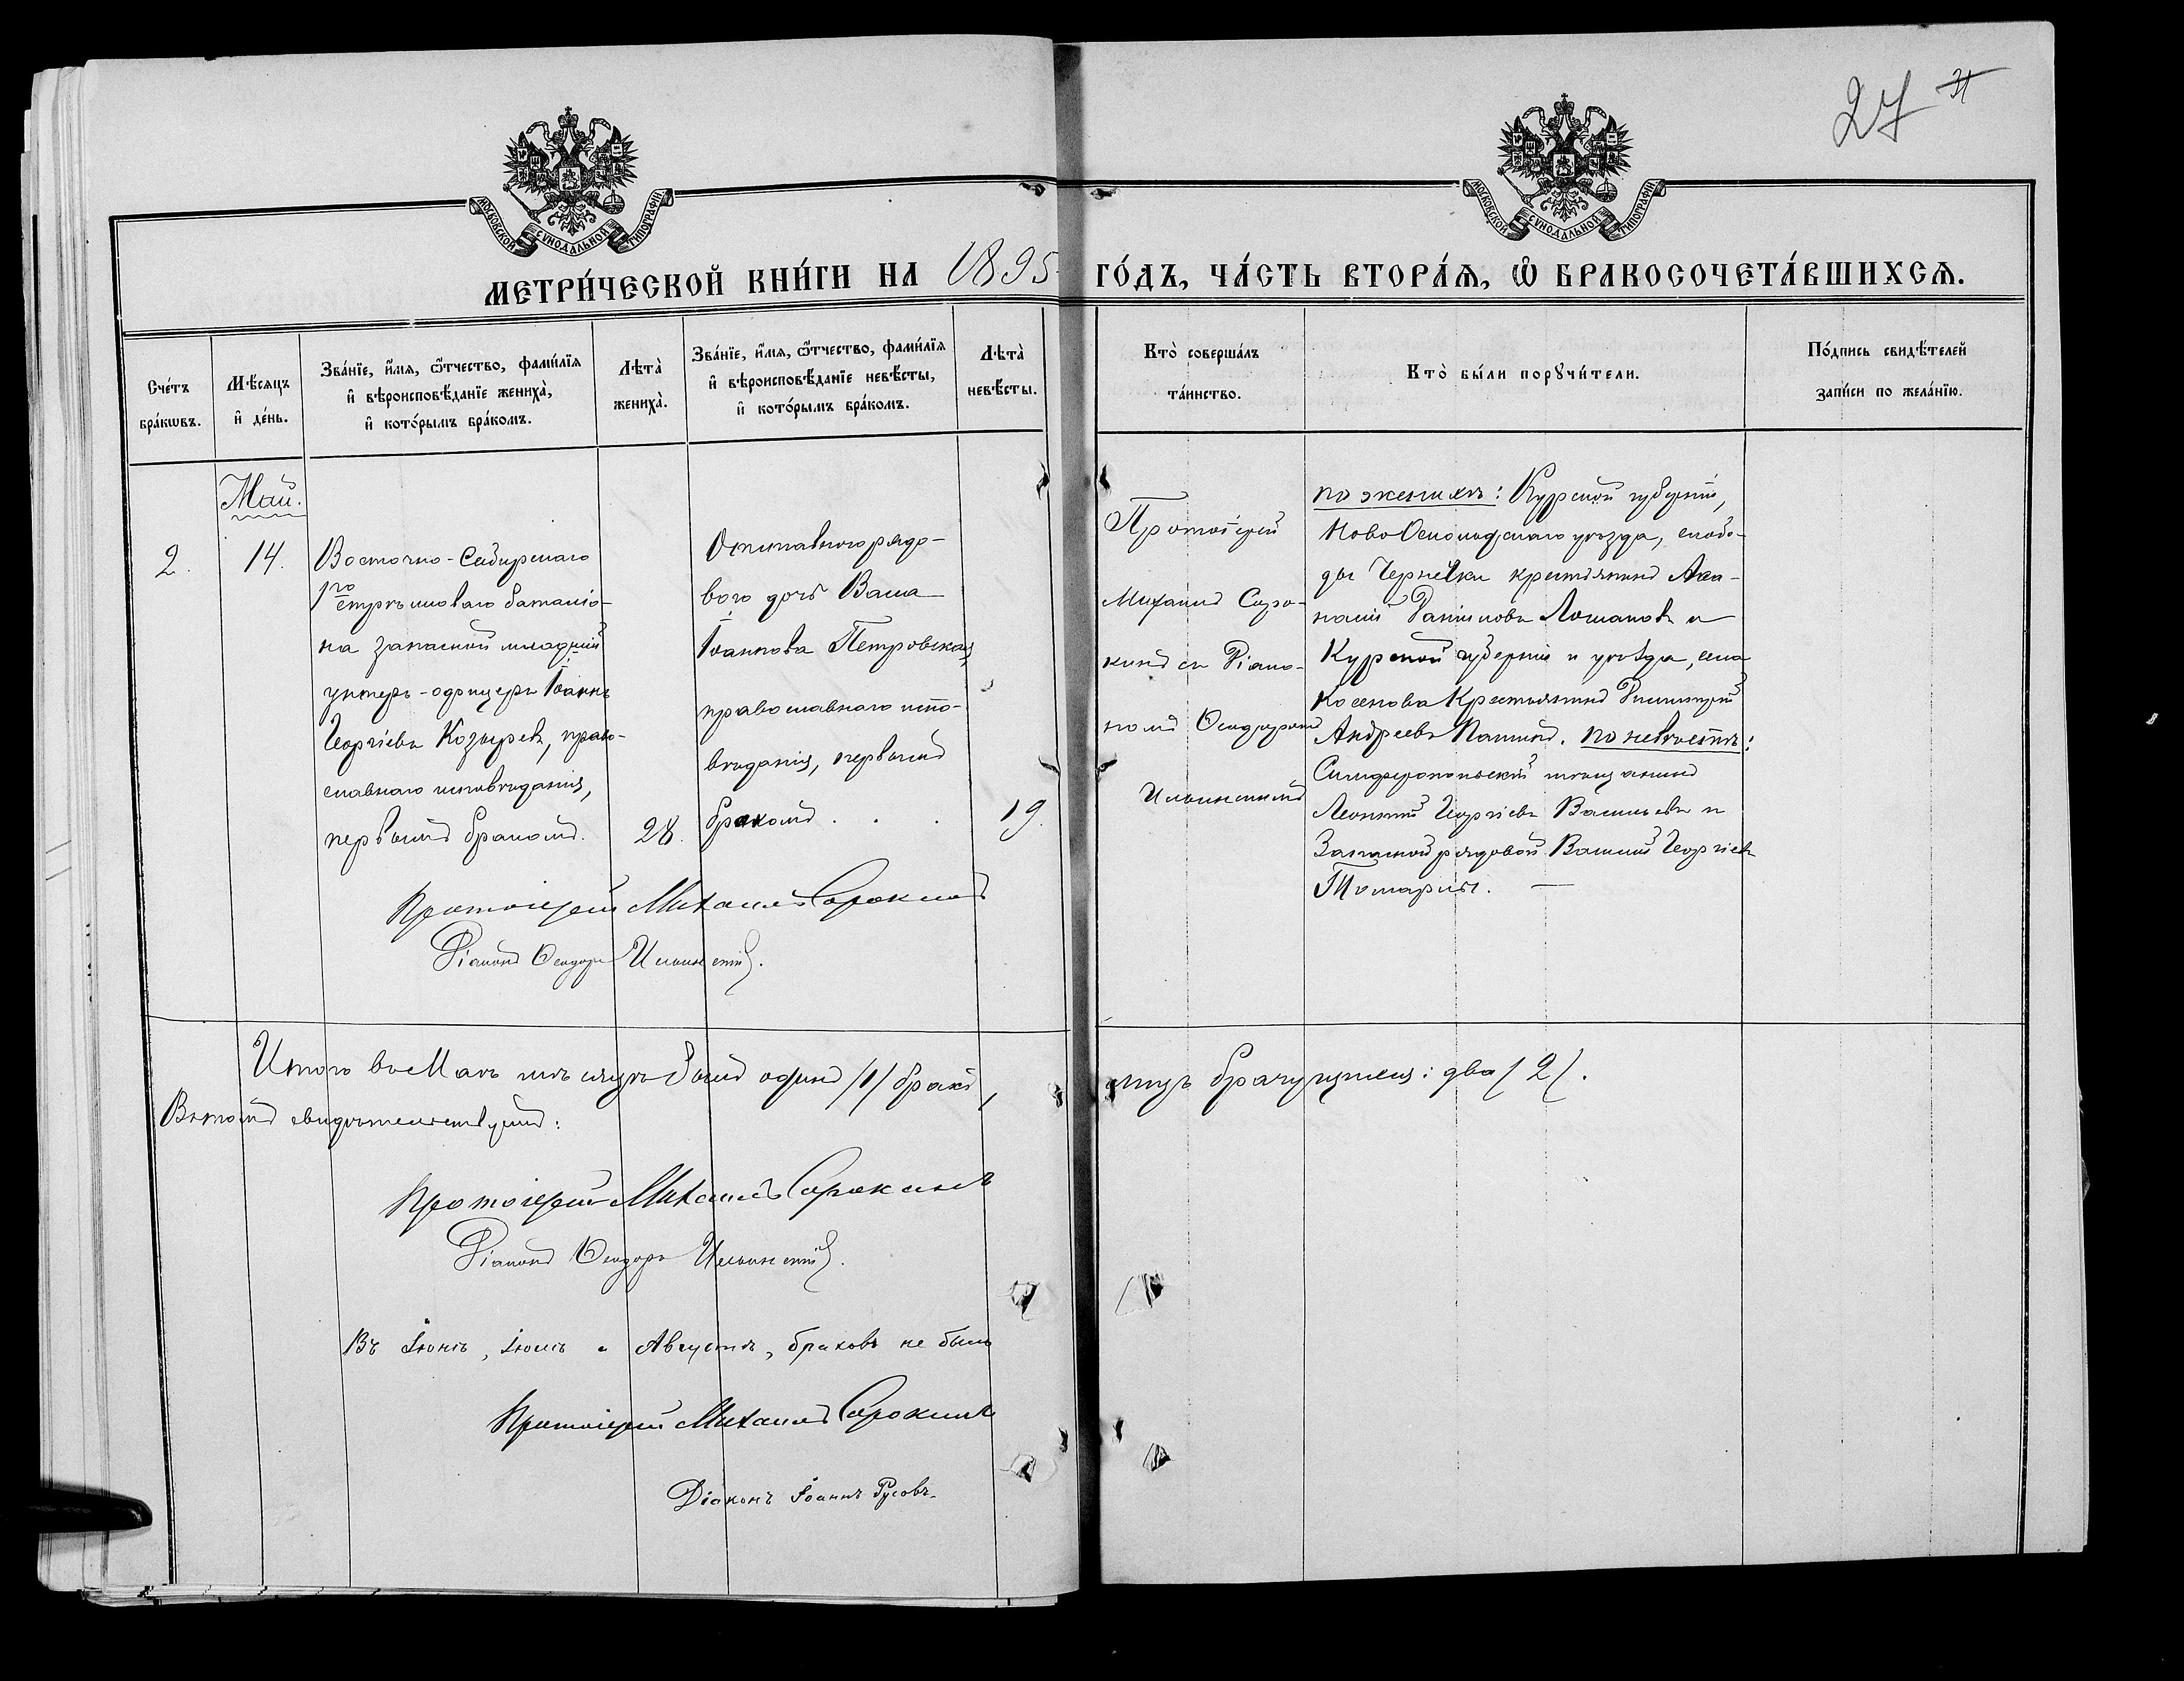 27 31
МОСКОВСКОЙ СѴНОДАЛЬНОЙ ТИПОГРАФІИ
МОСКОВСКОЙ СѴНОДАЛЬНОЙ ТИПОГРАФІИ
МЕТРИ́ЧЕСКОЙ КНИ́ГИ НА 1895 ГО́ДЪ, ЧА́СТЬ ВТОРА́Ѧ, Ѽ БРАКОСОЧЕТА́ВШИХСѦ.
Сче́тъ
бра́кѡвъ.
Мѣ́сѧцъ
и҆ де́нь.
Зва́нїе, и҆́мѧ, ѻ҆́тчество, фами́лїѧ
и҆ вѣроисповѣ́данїе жениха̀,
и҆ кото́рымъ бра́комъ.
Лѣта̀
жениха̀.
Зва́нїе, и҆́мѧ, ѻ҆́тчество, фами́лїѧ
и҆ вѣроисповѣ́данїе невѣ́сты,
и҆ кото́рымъ бра́комъ.
Лѣта̀
невѣ́сты.
Кто̀ соверша́лъ
та́инство.
Кто̀ бы́ли порꙋчи́тели.
По́дпись свидѣ́телей
за́писи по жела́нїю.
Май.
2.
14.
Восточно-Сибирскаго
1го стрѣлковаго баталіо-
на запасной младшій
унтеръ-офицеръ Іоаннъ
Георгіевъ Козыревъ, право-
славнаго исповѣданія,
первымъ бракомъ.
28.
Отставного рядо-
вого дочь Васса
Іоаннова Петровская,
православнаго испо-
вѣданія, первымъ
бракомъ . . .
19.
Протоіерей
Михаилъ Соро-
кинъ съ Діако-
номъ Ѳеодоромъ
Ильинскимъ
по женихѣ: Курской губерніи,
Ново Оскольскаго уѣзда, слобо-
ды Чернянки крестьянинъ Аѳа-
насій Даніиловъ Ломановъ и
Курской губерніи и уѣзда, села
Косинова Крестьянинъ Димитрій
Андреевъ Пашинъ. по невѣстѣ:
Симферопольскій мѣщанинъ
Леонтій Георгіевъ Васильевъ и
Запасной рядовой Василій Георгіевъ
Токаревъ. —
Протоіерей Михаилъ Сорокинъ
Діаконъ Ѳеодоръ Ильинскій.
Итого въ Маѣ мѣсяцѣ былъ одинъ /1/ бракъ,
лицъ брачущихся: два /2/.
Въ томъ свидѣтельствуемъ:
Протоіерей Михаилъ Сорокинъ
Діаконъ Ѳеодоръ Ильинскій.
Въ Іюнѣ, Іюлѣ и Августѣ, браковъ не было
Протоіерей Михаилъ Сорокинъ
Діаконъ Іоаннъ Русовъ.